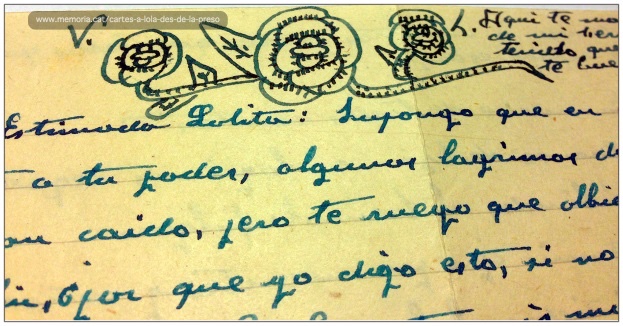 www.memoria.cat/cartes-a-lola-des-de-la-preso
V.
L. Aqui te
de mi
que
te
Estimada Lolita: Supongo que en
a tu poder, algunas lagrimas d
caido, pero te ruego que olbi
por que yo digo esto, si no